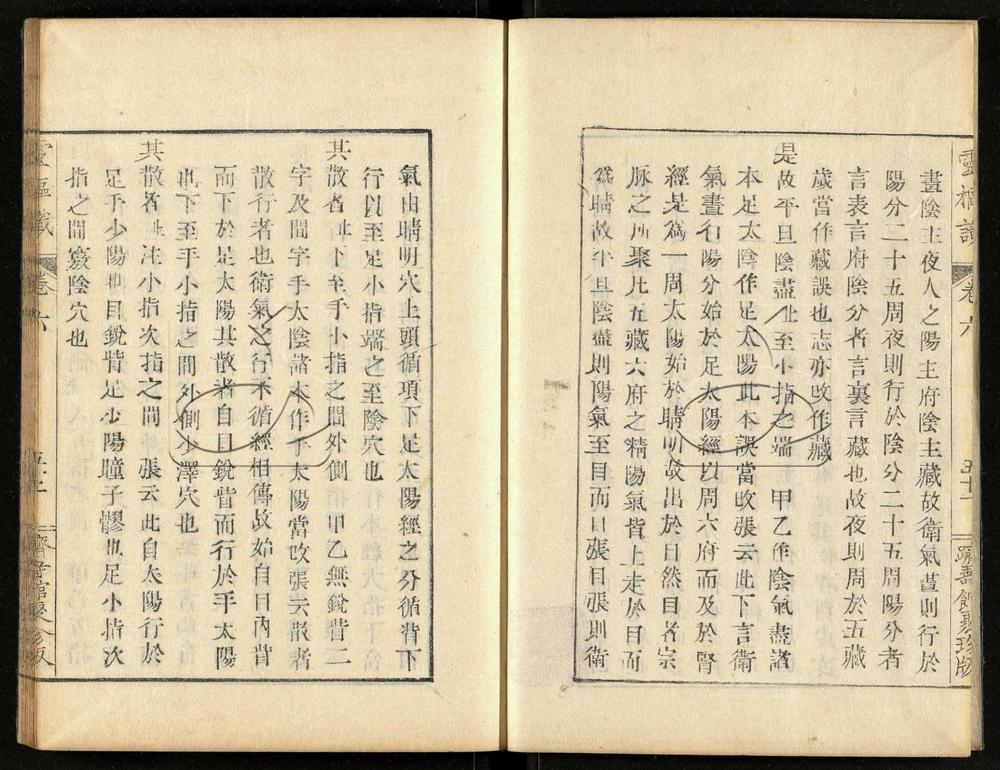 靈樞識 卷六 五十一 躋壽館聚珍版
晝陰主夜人之陽主府陰主藏故衛氣晝則行於
陽分二十五周夜則行於陰分二十五周陽分者
言表言府陰分者言裏言藏也故夜則周於五藏
歲當作藏誤也志亦改作藏
是故平旦陰盡止至小指之端 甲乙作陰氣盡諸
本足太陰作足太陽此本誤當改張云此下言衛
氣晝行陽分始於足太陽經以周六府而及於腎
經是爲一周太陽始於睛明故出於目然目者宗
脉之所聚凡五藏六府之精陽氣皆上走於目而
爲睛故平旦陰盡則陽氣至目而目張目張則衛
氣由睛明穴上頭循項下足太陽經之分循背下
行以至足小指端之至陰穴也
其散者止下至手小指之間外側 甲乙無銳眥二
字及間字手太陰諸本作手太陽當改張云散者
散行者也衛氣之行不循經相傳故始自目內眥
而下於足太陽其散者自目銳眥而行於手太陽
也下至手小指之間外側少澤穴也
其散者止注小指次指之間 張云此自太陽行於
足手少陽也目銳眥足少陽瞳子髎也足小指次
指之間竅陰穴也
靈樞識 卷六 五十二 躋壽館聚珍版